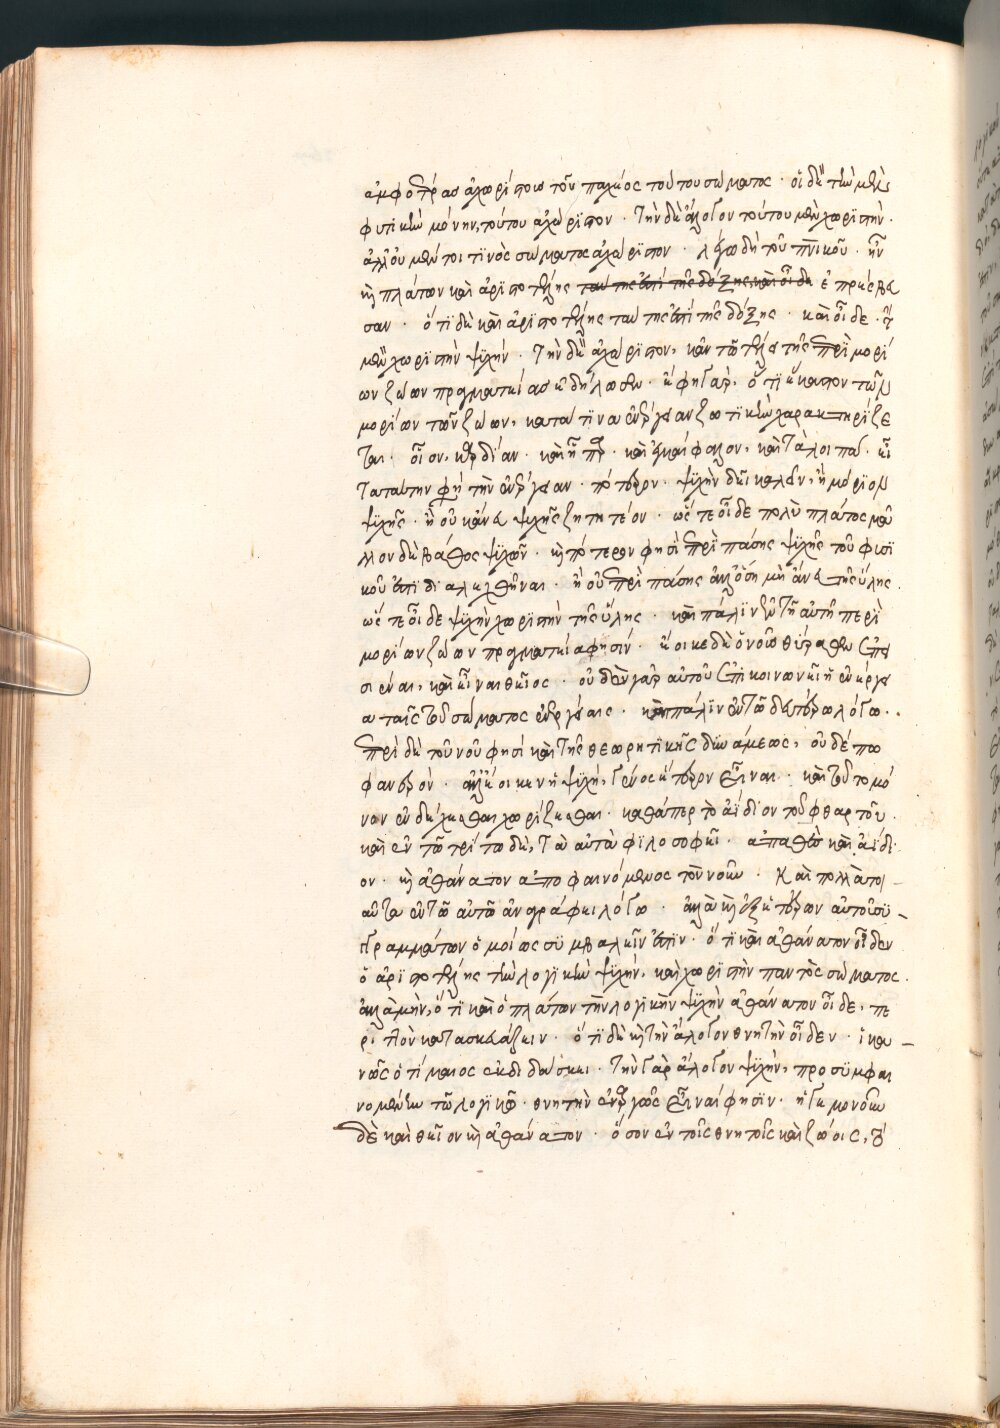 ἀμφοτέρας ἀχωρίστους τῶν παχέος τούτου σώματος · οἱ δὲ τὴν μὲν
φυτικὴν μόνην, τούτου ἀχώριστον · τὴν δὲ ἄλογον τούτου μὲν χωριστὴν ·
ἄλλου μέντοι τινὸς σώματος ἀχώριστον · λέγω δὴ τοῦ πν̅ικοῦ · ἧς
καὶ πλάτων καὶ ἀριστοτέλης ἐπρέσβευ
σαν · ὅτι δὲ καὶ ἀριστοτέλης ταύτης ἐστὶ τῆς δόξης · καὶ οἶδε
μὲν χωριστὴν ψυχήν · τὴν δὲ ἀχώριστον, κἀν τῷ τέλει τῆς περὶ μορί
ων ζώων πραγματείας ἐδήλωσεν · ἔφη γὰρ, ὅτι ἕκαστον τῶν
μορίων τῶν ζώων, κατά τινα ἐνέργειαν ζωτικὴν χαρακτηρίζε
ται · οἷον, καρδίαν · καὶ ἧπαρ · καὶ ἐγκέφαλον, καὶ τὰ λοιπά ·
ταύτην τὴν ἐνέργειαν · πότερον · ψυχὴν δεῖ καλεῖν, ἢ μόριον
ψυχῆς · ἢ οὐκ ἄνευ ψυχῆς ζητητέον · ὥστε οἶδε πολὺ πλάτος μᾶ
λλον δὲ βάθος ψυχῶν · καὶ πότερον φησὶ περὶ πάσης ψυχῆς τοῦ φυσι
κοῦ ἐστὶ διαλεχθῆναι · ἢ οὐ περὶ πάσης ἀλλ' ὅση μὴ ἄνευ τῆς ὕλης ·
ὥστε οἶδε ψυχὴν χωριστὴν τῆς ὕλης · καὶ πάλιν ἐν τῇ αὐτῇ περὶ
μορίων ζώων πραγματείᾳ φησίν · ἔοικε δὲ ὁ νοῦς θύραθεν ἐπει
σιέναι, καὶ εἶναι θεῖος · οὐδὲν γὰρ αὐτοῦ ἐπικοινωνεῖ ἡ ἐνέργει
α ταῖς τοῦ σώματος ἐνεργείαις · καὶ πάλιν ἐν τῷ δευτέρῳ λόγῳ ·
περὶ δὲ τοῦ νοῦ φησὶ καὶ τῆς θεωρητικῆς δυνάμεως, οὐδέπω
φανερόν · ἀλλ' ἔοικεν ἡ ψυχή, γένος ἕτερον εἶναι · καὶ τοῦτο μό
νον ἐνδέχεσθαι χωρίζεσθαι · καθάπερ τὸ ἀΐδιον τοῦ φθαρτοῦ ·
καὶ ἐν τῷ τρίτῳ δὲ, τὰ αὐτὰ φιλοσοφεῖ · ἀπαθῆ καὶ ἀΐδι
ον · καὶ ἀθάνατον ἀποφαινόμενος τὸν νοῦν · καὶ πολλὰ τοι-
αῦτα ἐν τῷ αὐτῷ ἀναγράφει λόγῳ · ἀλλὰ καὶ ἐξ ἑτέρων αὐτοῦ συ-
γραμμάτων ὁμοίως συμβαλεῖν ἐστιν · ὅτι καὶ ἀθάνατον οἶδεν
ὁ ἀριστοτέλης τὴν λογικὴν ψυχήν, καὶ χωριστὴν παντὸς σώματος ·
ἀλλὰ μὴν, ὅτι καὶ ὁ πλάτων τὴν λογικὴν ψυχὴν ἀθάνατον οἶδε, πε
ριττὸν κατασκευάζειν · ὅτι δὲ καὶ τὴν ἄλογον θνητὴν οἶδεν · ἱκα-
νῶς ὁ τίμαιος ἐκδιδάσκει · τὴν γὰρ ἄλογον ψυχήν, προσυμφαι
νομένην τῷ λογικῷ · θνητὴν ἐναργῶς εἶναί φησιν · ἡγεμονοῦν
δὲ καὶ θεῖον καὶ ἀθάνατον · ὅσον ἐν τοῖς θνητοῖς καὶ ζῴοις,